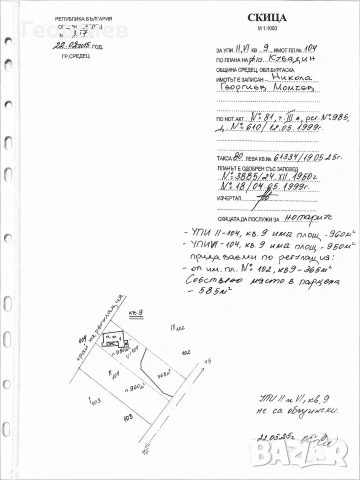 РЕПУБЛИКА БЪЛГАРИЯ
ГР.СРЕДЕЦ
СКИЦА
М 1:1000
ЗА УПИ II,VI КВ 9 ИМОТ ПЛ.№ 104
ПО ПЛАНА НА
ОБЩИНА СРЕДЕЦ, ОБЛ.БУРГАСКА
ИМОТЪТ Е ЗАПИСАН - Никола
Георгиев Момчев
ПО НОТ.АКТ № 81, т. III, рег. № 985,
д. № 610/12.05.1999г.
ТАКСА 20 ЛЕВА КВ.№ 61334/19.05.25г.
ПЛАНЪТ Е ОДОБРЕН СЪС ЗАПОВЕД
№ 3885/24.XII.1960г
№ 18/04.05.1999г.
ИЗЧЕРТАЛ
СКИЦАТА ДА ПОСЛУЖИ ЗА нотариус
- УПИ II-104, кв. 9 има площ -960м²
- УПИ VI-104, кв. 9 има площ -950м²
придаваеми по регулация:
- от им. пл. № 102, кв.9 -365м²
Собствено място в парцела
- 585м²
край на регулация
кв.9
104
103
103
102
УПИ II и VI, кв. 9
не са общински.